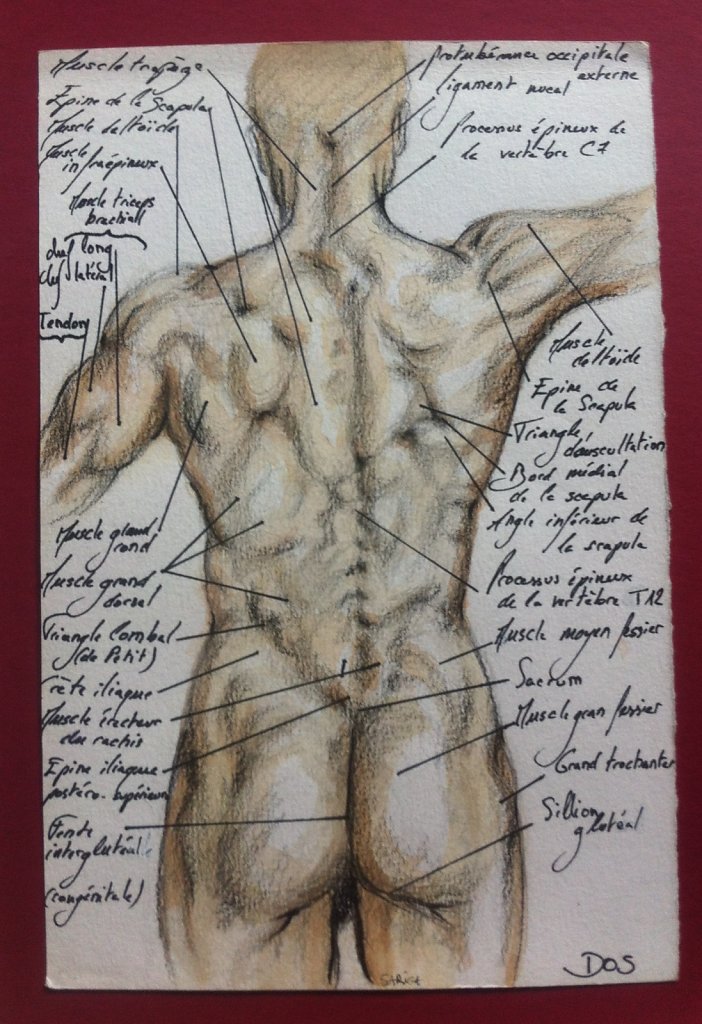 Muscle trapèze
Epine de la Scapula
Muscle deltoïde
Muscle
infraépineux
Muscle triceps
brachial
chef long
chef latéral
Tendon
Muscle grand
rond
Muscle grand
dorsal
Triangle lombal
(de Petit)
Crête iliaque
Muscle érecteur
du rachis
Epine iliaque
postéro-supérieure
Fente
interglutéale
(congénitale)
Protubérance occipitale
externe
ligament nucal
Processus épineux de
la vertèbre C7
Muscle
deltoïde
Epine de
la Scapula
Triangle
d'auscultation
Bord médial
de la scapula
Angle inférieur de
la scapula
Processus épineux
de la vertèbre T12
Muscle moyen fessier
Sacrum
Muscle gran fessier
Grand trochanter
Sillion
glutéal
DOS